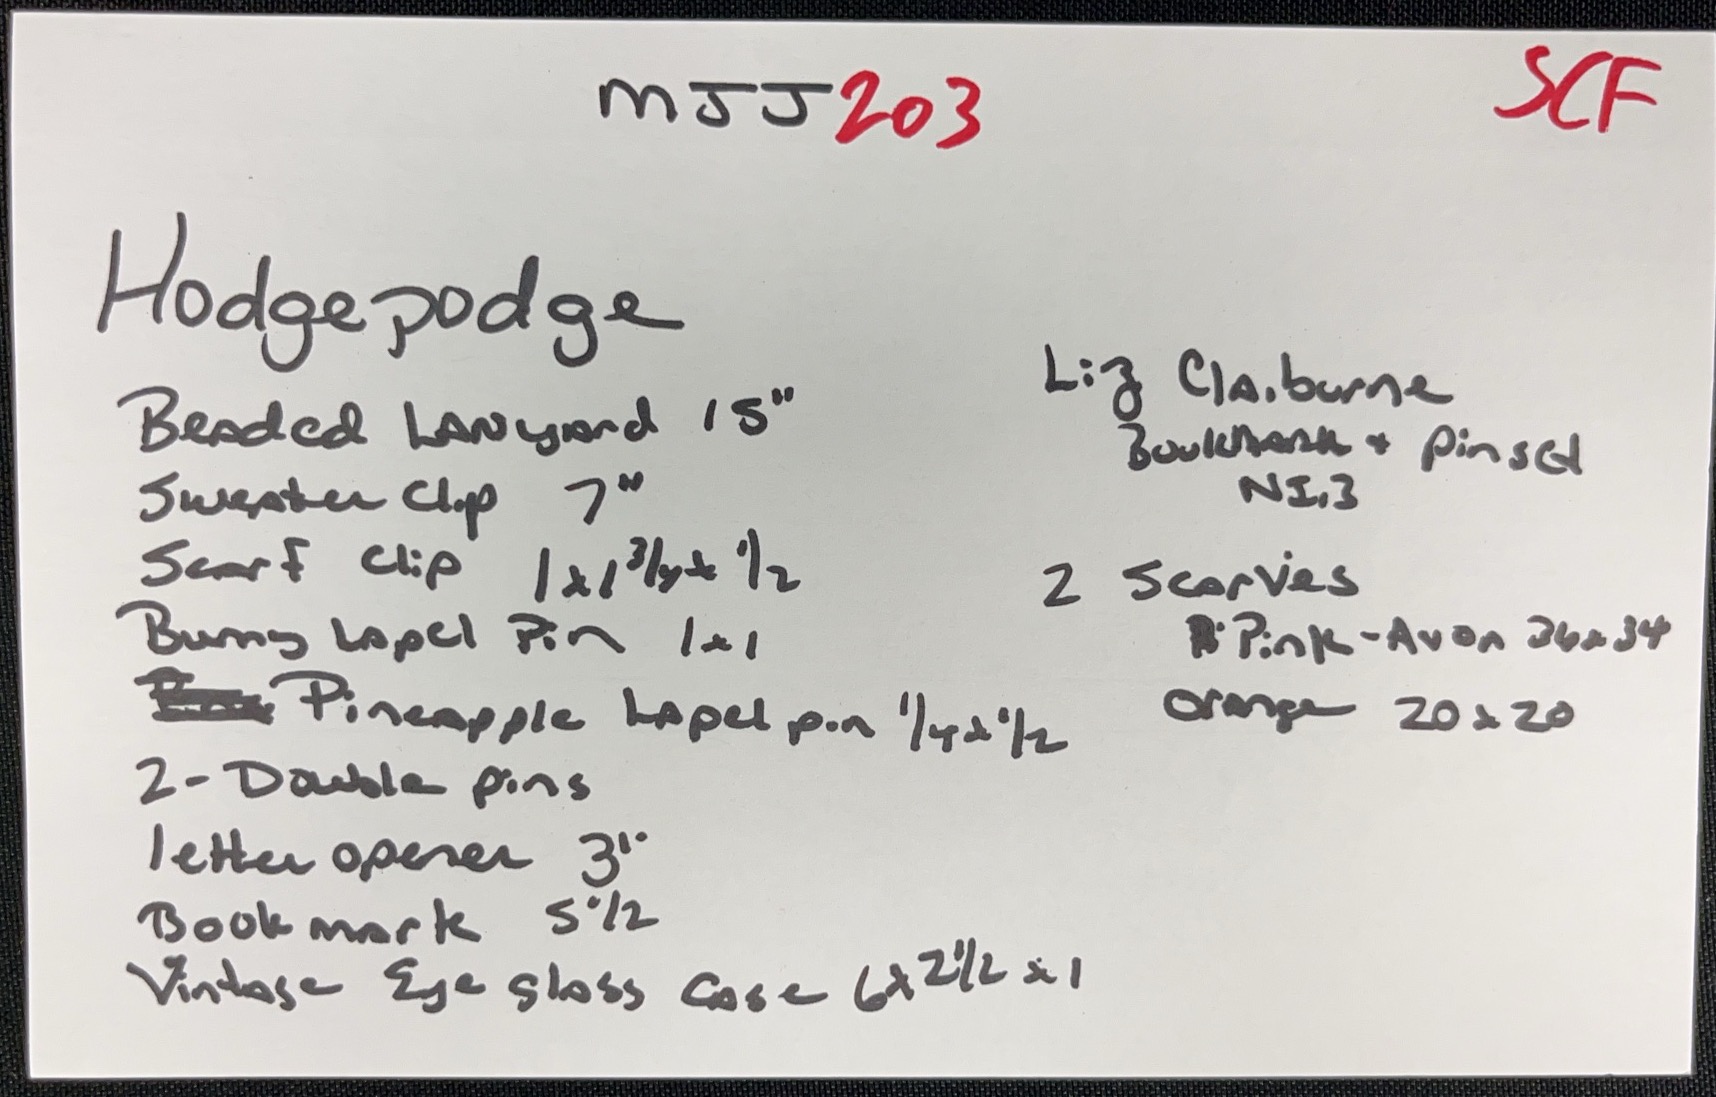 MJJ203
SCF
Hodgepodge
Beaded Lanyard 15"
Sweater Clip 7"
Scarf Clip 1x1 3/4 x 1/2
Bunny Lapel Pin 1x1
Pineapple Lapel pin 1/4 x 1/2
2-Double pins
letter opener 3"
Book mark 5 1/2
Vintage Eye glass Case 6x2 1/2 x 1
Liz Claiburne
Bookmark + pin set
NI.3
2 Scarvies
Pink-Avon 36x34
Orange 20x20